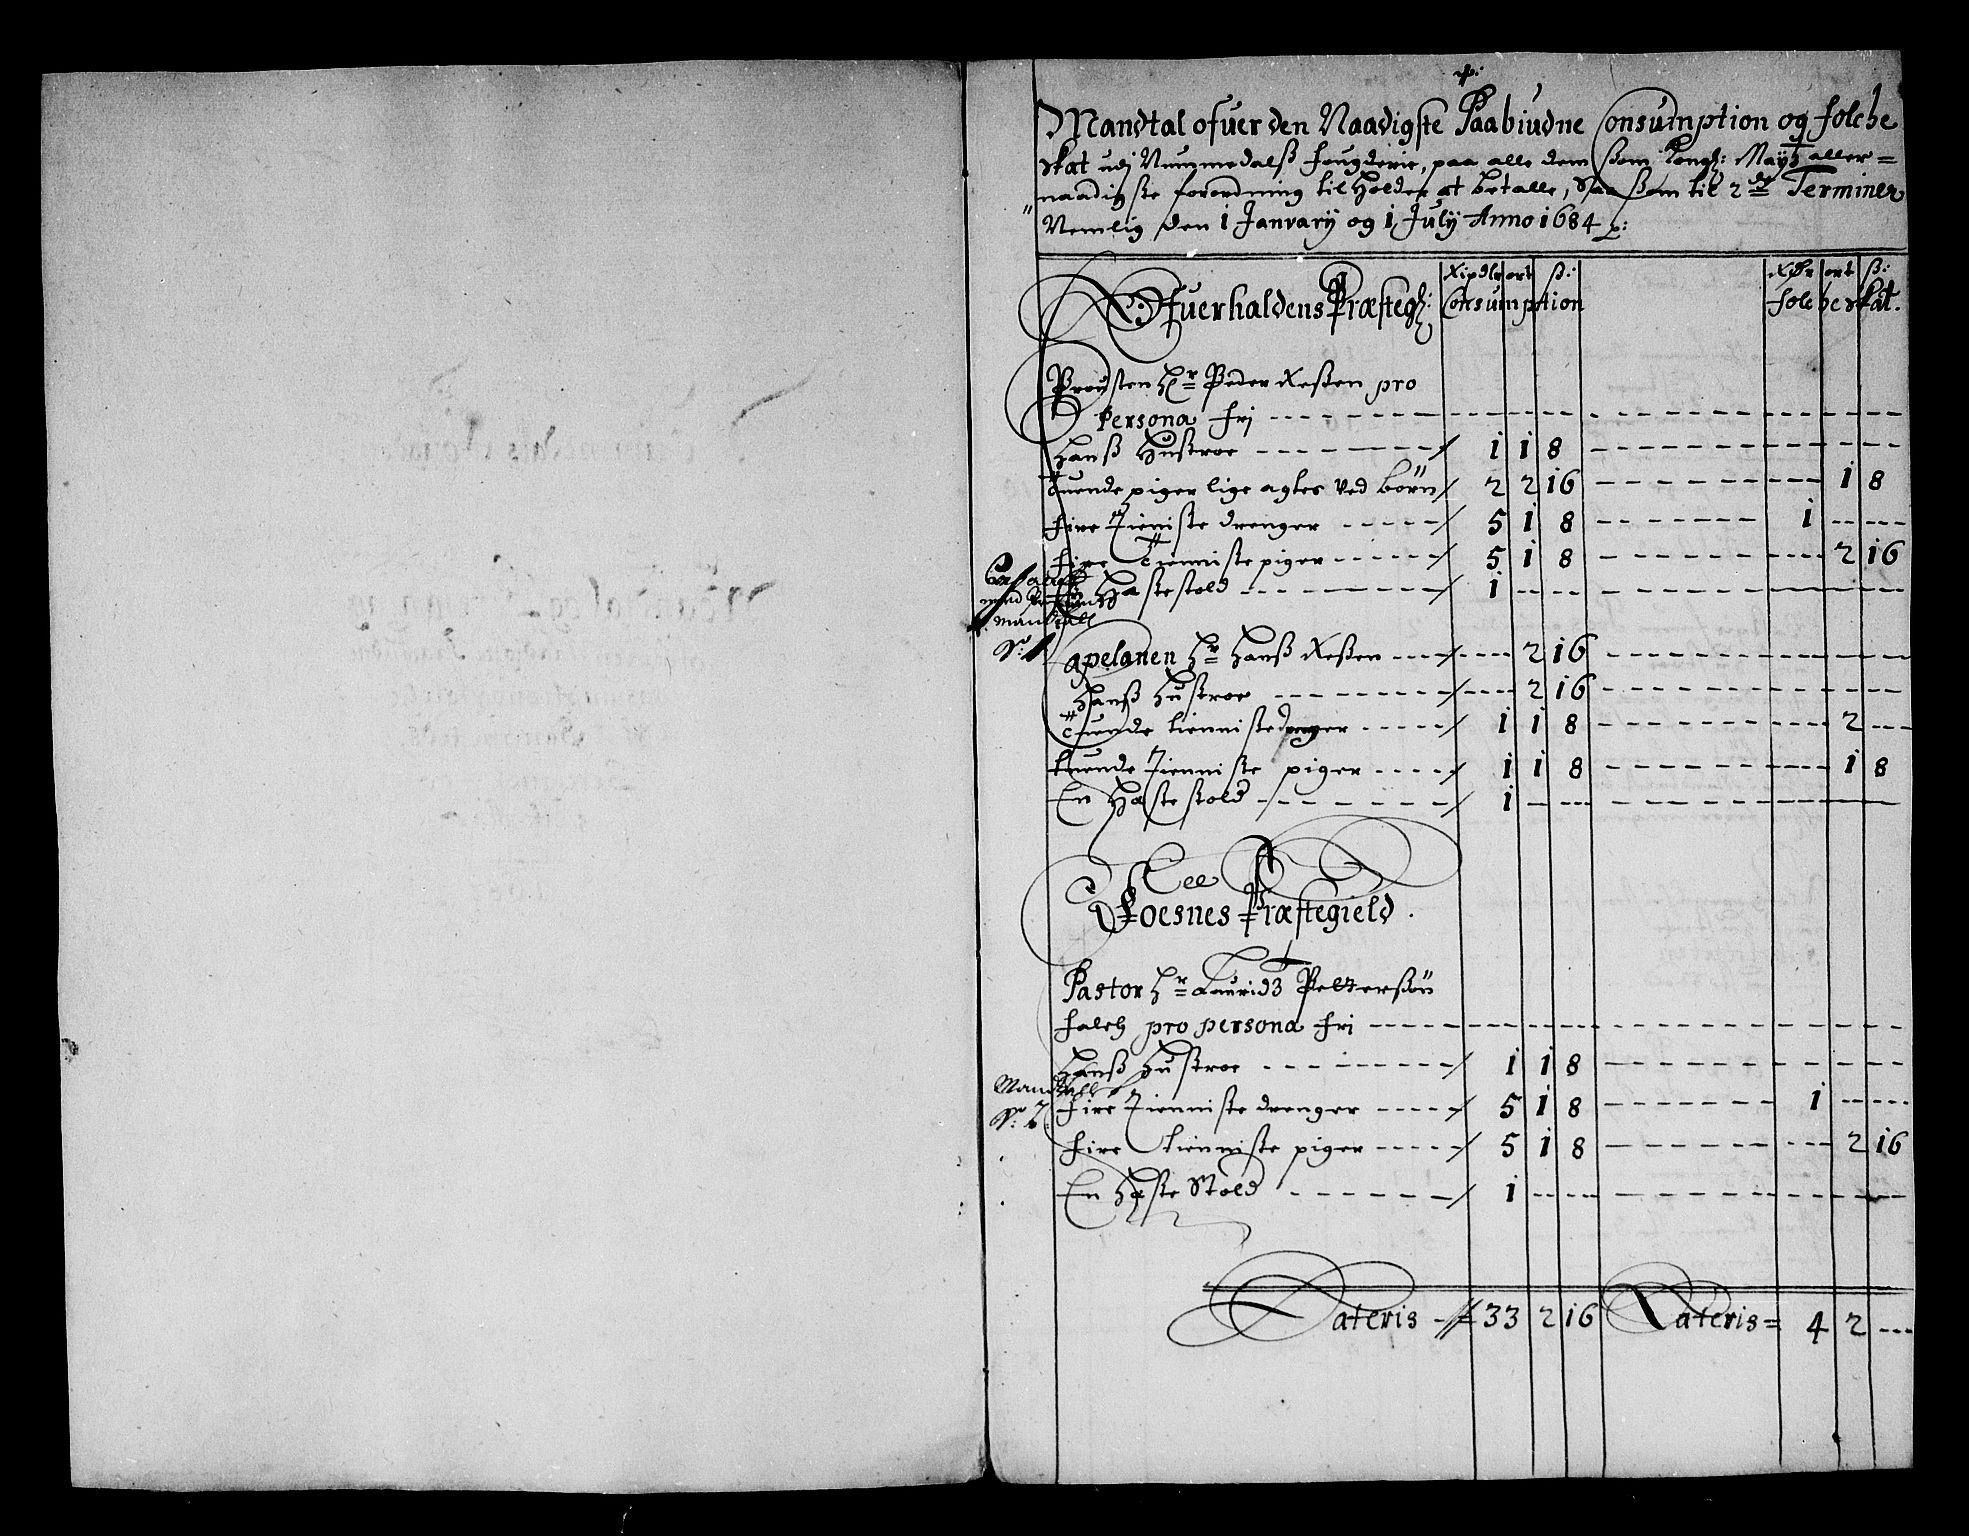 Mandtal ofuer den Naadigste Paabiudne Consumption og folche
Skat udj Nummedalß fougderie, paa alle dem ßom Kongl: Mayts aller=
naadigste forordning tilholder at betalle, Saa ßom til 2de Terminer
Nemlig den 1 Januarij og 1 Julij Anno 1684
Rixdlr ort ß: Rdr ort ß:
Ofuerhaldens Præstegl: Consumption folche skat.
Prousten Hr Peder Reßen pro
Persona frj
Hanß Hustroe 1 1 8
tuende piger lige agtes ved børn 2 2 16 1 8
fire Tieniste drenger 5 1 8 1
fire Tienniste piger 5 1 8 2 16
En Haste stold 1
mandtall
No: 1
Capelanen Hr Hanß Reßen 2 16
Hanß Hustroe 2 16
Tuende tienniste drenger 1 1 8 2
tuende Tienniste piger 1 1 8 1 8
En Haste stold 1
Foesnes Præstegield.
Pastor Hr Laurids Pettersøn
falch pro persona fri
Hanß Hustroe 1 1 8
Mandtall
No: 2
fire Tienniste drenger 5 1 8 1
fire tienniste piger 5 1 8 2 16
En Haste Stold 1
Lateris 33 2 16 Lateris = 4 2